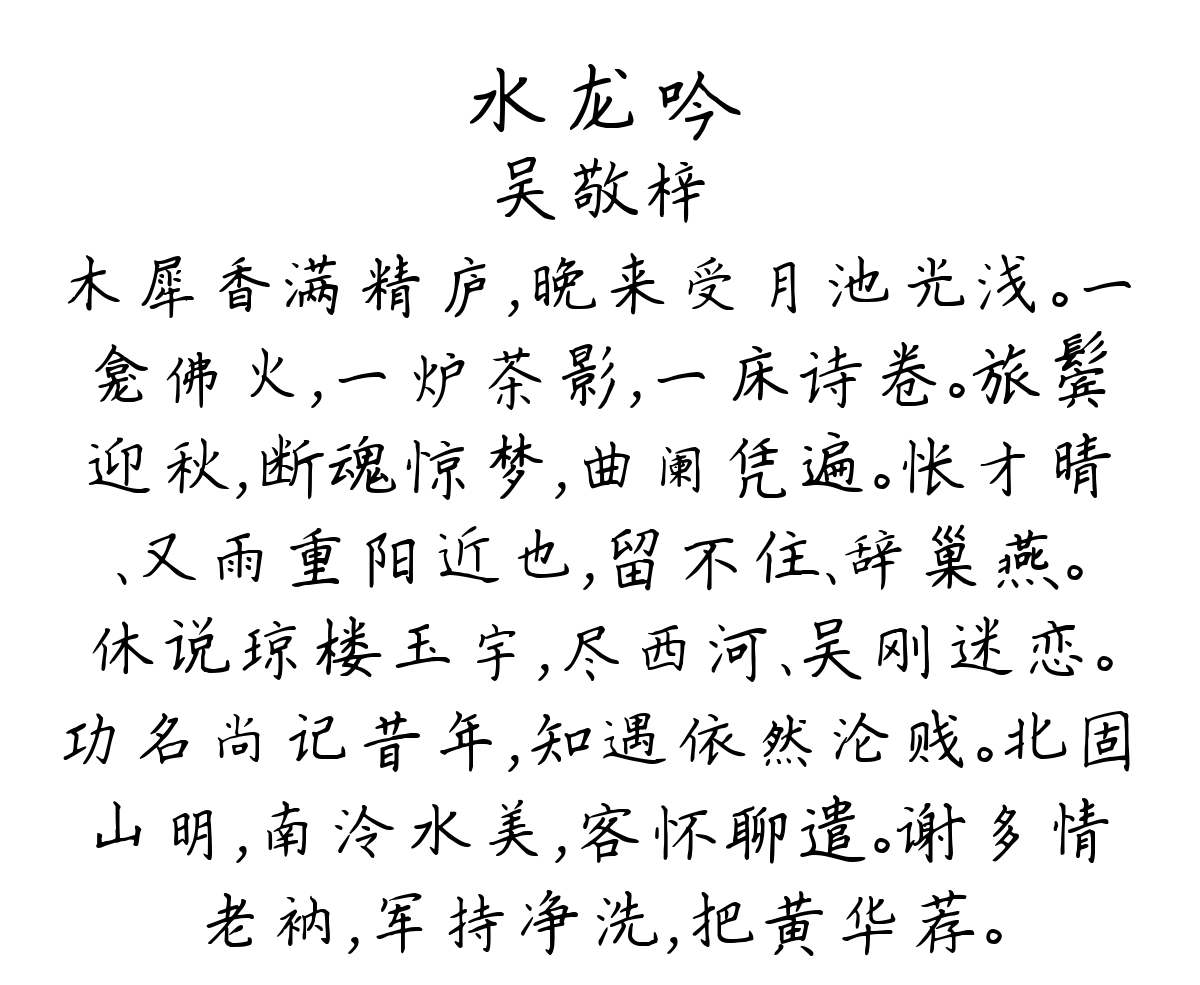 水龙吟
吴敬梓
木犀香满精庐,晚来受月池光浅。一
龛佛火,一炉茶影,一床诗卷。旅鬓
迎秋,断魂惊梦,曲阑凭遍。怅才晴
、又雨重阳近也,留不住、辞巢燕。
休说琼楼玉宇,尽西河、吴刚迷恋。
功名尚记昔年,知遇依然沦贱。北固
山明,南泠水美,客怀聊遣。谢多情
老衲,军持净洗,把黄华荐。